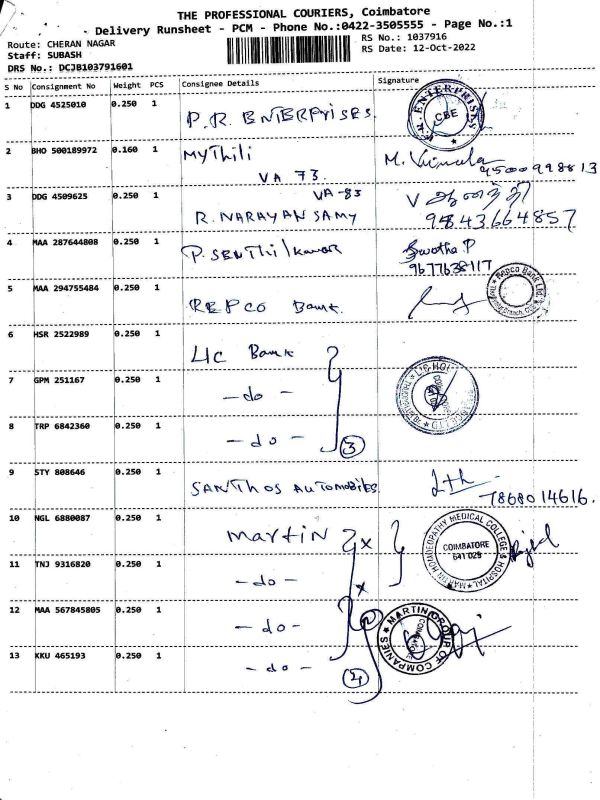 THE PROFESSIONAL COURIERS, Coimbatore
Delivery Runsheet - PCM - Phone No.:0422-3505555 - Page No.:1
Route: CHERAN NAGAR
RS No.: 1037916
Staff: SUBASH
RS Date: 12-Oct-2022
DRS No.: DCJB103791601
S No Consignment No Weight PCS Consignee Details Signature
1 DDG 4525010 0.250 1 P.R. ENTERPRISES.
ENTERPRISES
CBE
2 BHO 500189972 0.160 1 Mythili
VA 73.
M. Vimala
9500998813
3 DDG 4509625 0.250 1 VA-83
R. NARAYANSAMY
V
9843664857
4 MAA 287644808 0.250 1 P. Senthilkumar
Swetha P
9677638117
5 MAA 294755484 0.250 1 REPCO Bank.
Repco Bank Ltd.
6 HSR 2522989 0.250 1 LIC Bank
7 GPM 251167 0.250 1 - do -
8 TRP 6842360 0.250 1 - do -
3
9 STY 808646 0.250 1 SANTHOS AUTOMOBILES.
7868014616.
10 NGL 6880087 0.250 1 Martin
MARTIN HOMOEOPATHY MEDICAL COLLEGE & HOSPITAL
COIMBATORE
641 029
11 TNJ 9316820 0.250 1 - do -
12 MAA 567845805 0.250 1 - do -
MARTIN GROUP OF COMPANIES
13 KKU 465193 0.250 1 - do -